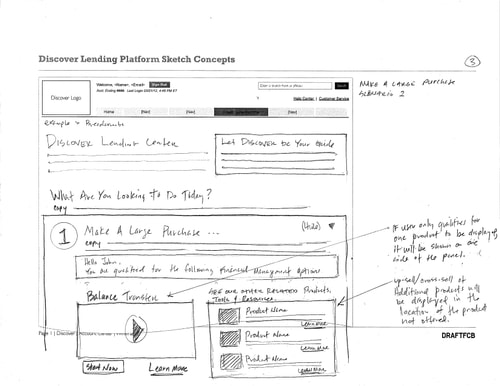 Discover Lending Platform Sketch Concepts
3
MAKE A LARGE PURCHASE
SCENARIO 2
Discover Logo
Welcome, <Name>, <Email> Sign Out
Help Center | Customer Service
Home
[Nav]
[Nav]
[Nav]
[Nav]
example > Breadcrumbs
DISCOVER Lending Center
Let DISCOVER be Your Guide
What Are You Looking To Do Today?
copy
1
Make A Large Purchase ...
(Hide)
copy
Hello John,
You are qualified for the following Financial Management Options
Balance Transfer
SEE OUR OTHER RELATED Products,
Tools & Resources.
Product Name
Learn More
Product Name
Learn More
Product Name
Learn More
Start Now
Learn More
If user only qualifies for
one product to be displayed,
it will be shown on one
side of the panel.
up-sell/cross-sell of
Additional products will
be displayed in the
location of the product
not offered.
Page 1 | Discover
DRAFTFCB